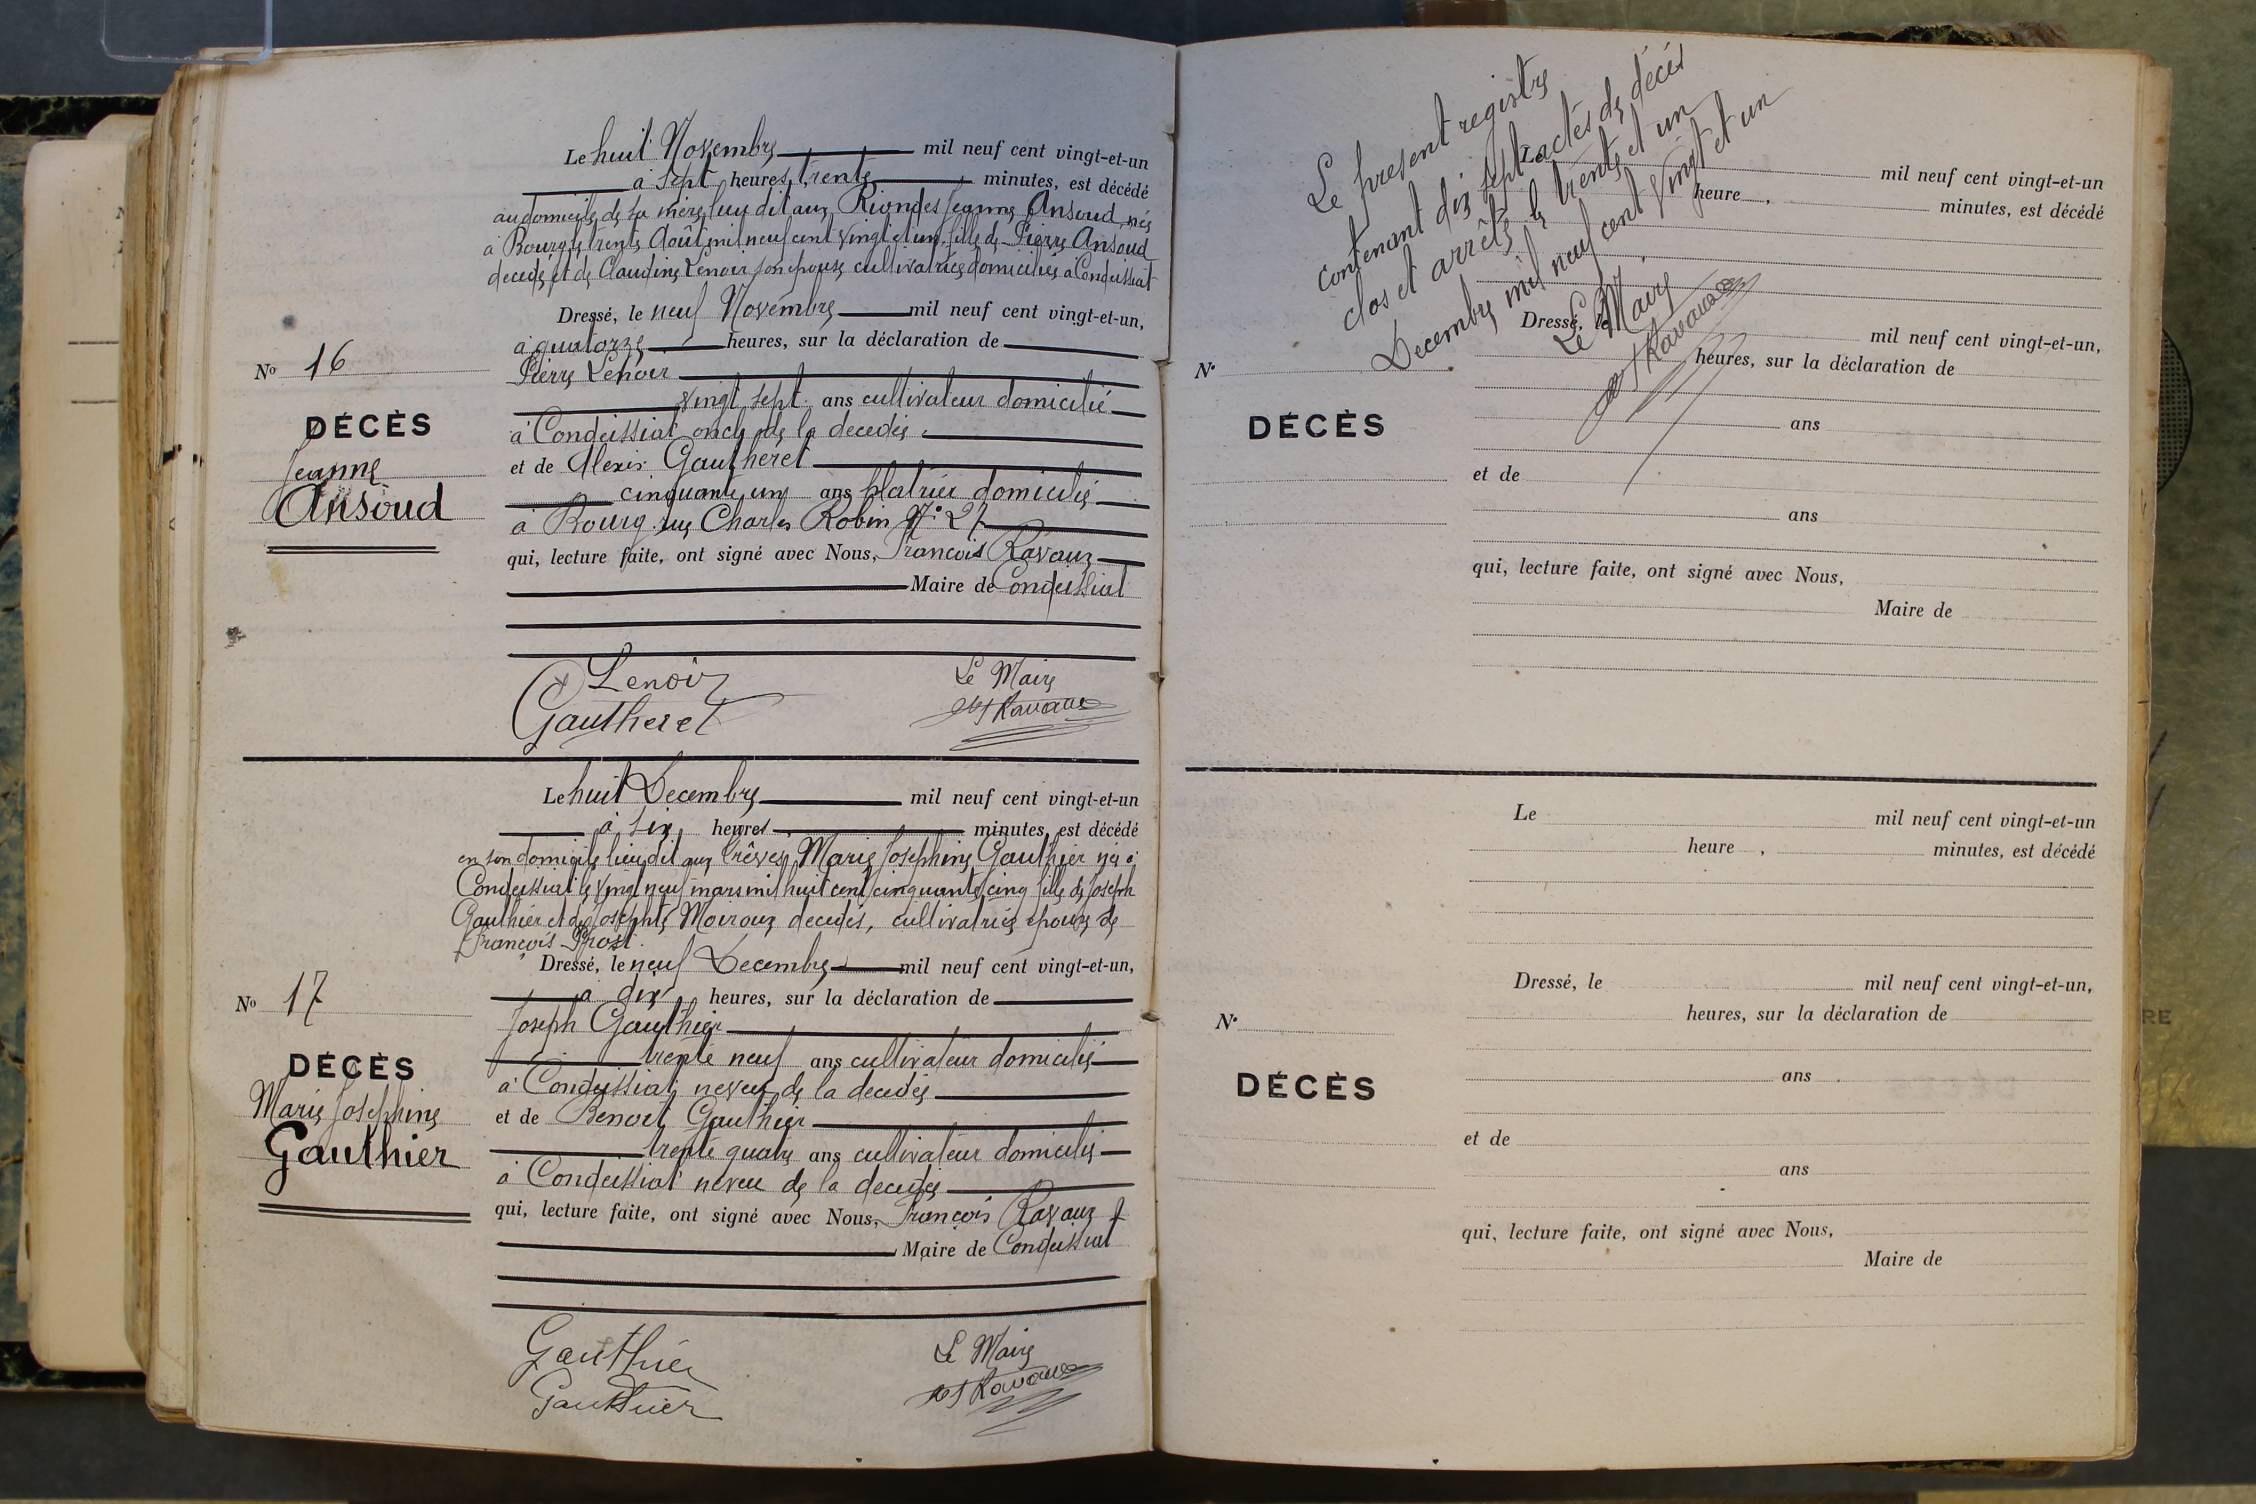 Le huit Novembre mil neuf cent vingt-et-un
à sept heures, trente minutes, est décédé
au domicile de sa mère, lieu dit aux Riondes Jeanne Ansoud, née
à Bourg le trente Août mil neuf cent vingt et un, fille de Pierre Ansoud
décédé et de Claudine Lenoir son épouse cultivatrice domiciliée à Condeissiat
Dressé, le neuf Novembre mil neuf cent vingt-et-un,
à quatorze heures, sur la déclaration de
Pierre Lenoir
vingt sept ans cultivateur domicilié
à Condeissiat oncle de la décédée.
et de Alexis Gautheret
cinquante un ans plâtrier domicilié
à Bourg rue Charles Robin N° 27
qui, lecture faite, ont signé avec Nous, François Ravaux
Maire de Condeissiat
No 16
DÉCÈS
Jeanne
Ansoud
Lenoir
Gautheret
Le Maire
Ravaux
Le huit Decembre mil neuf cent vingt-et-un
à six heures, minutes, est décédé
en son domicile lieu dit aux Marie Josephine Gauthier née à
Condeissiat le vingt neuf mars mil huit cent cinquante cinq fille de Joseph
Gauthier et de Josephte Moiroux decedés, cultivatrice épouse de
François Prost.
Dressé, le neuf Decembre mil neuf cent vingt-et-un,
à dix heures, sur la déclaration de
Joseph Gauthier
trente neuf ans cultivateur domicilié
à Condeissiat neveu de la decedée
et de Benoit Gauthier
trente quatre ans cultivateur domicilié
à Condeissiat neveu de la decedée
qui, lecture faite, ont signé avec Nous, François Ravaux
Maire de Condeissiat
No 17
DÉCÈS
Marie Josephine
Gauthier
Gauthier
Gauthier
Le Maire
Ravaux
Le présent registre
contenant dix sept actes de décès
clos et arrêté le trente et un
Decembre mil neuf cent vingt et un
Le Maire
Ravaux
Le mil neuf cent vingt-et-un
heure , minutes, est décédé
Dressé, le mil neuf cent vingt-et-un,
heures, sur la déclaration de
N°
DÉCÈS
ans
et de
ans
qui, lecture faite, ont signé avec Nous,
Maire de
Le mil neuf cent vingt-et-un
heure , minutes, est décédé
Dressé, le mil neuf cent vingt-et-un,
heures, sur la déclaration de
N°
DÉCÈS
ans
et de
ans
qui, lecture faite, ont signé avec Nous,
Maire de